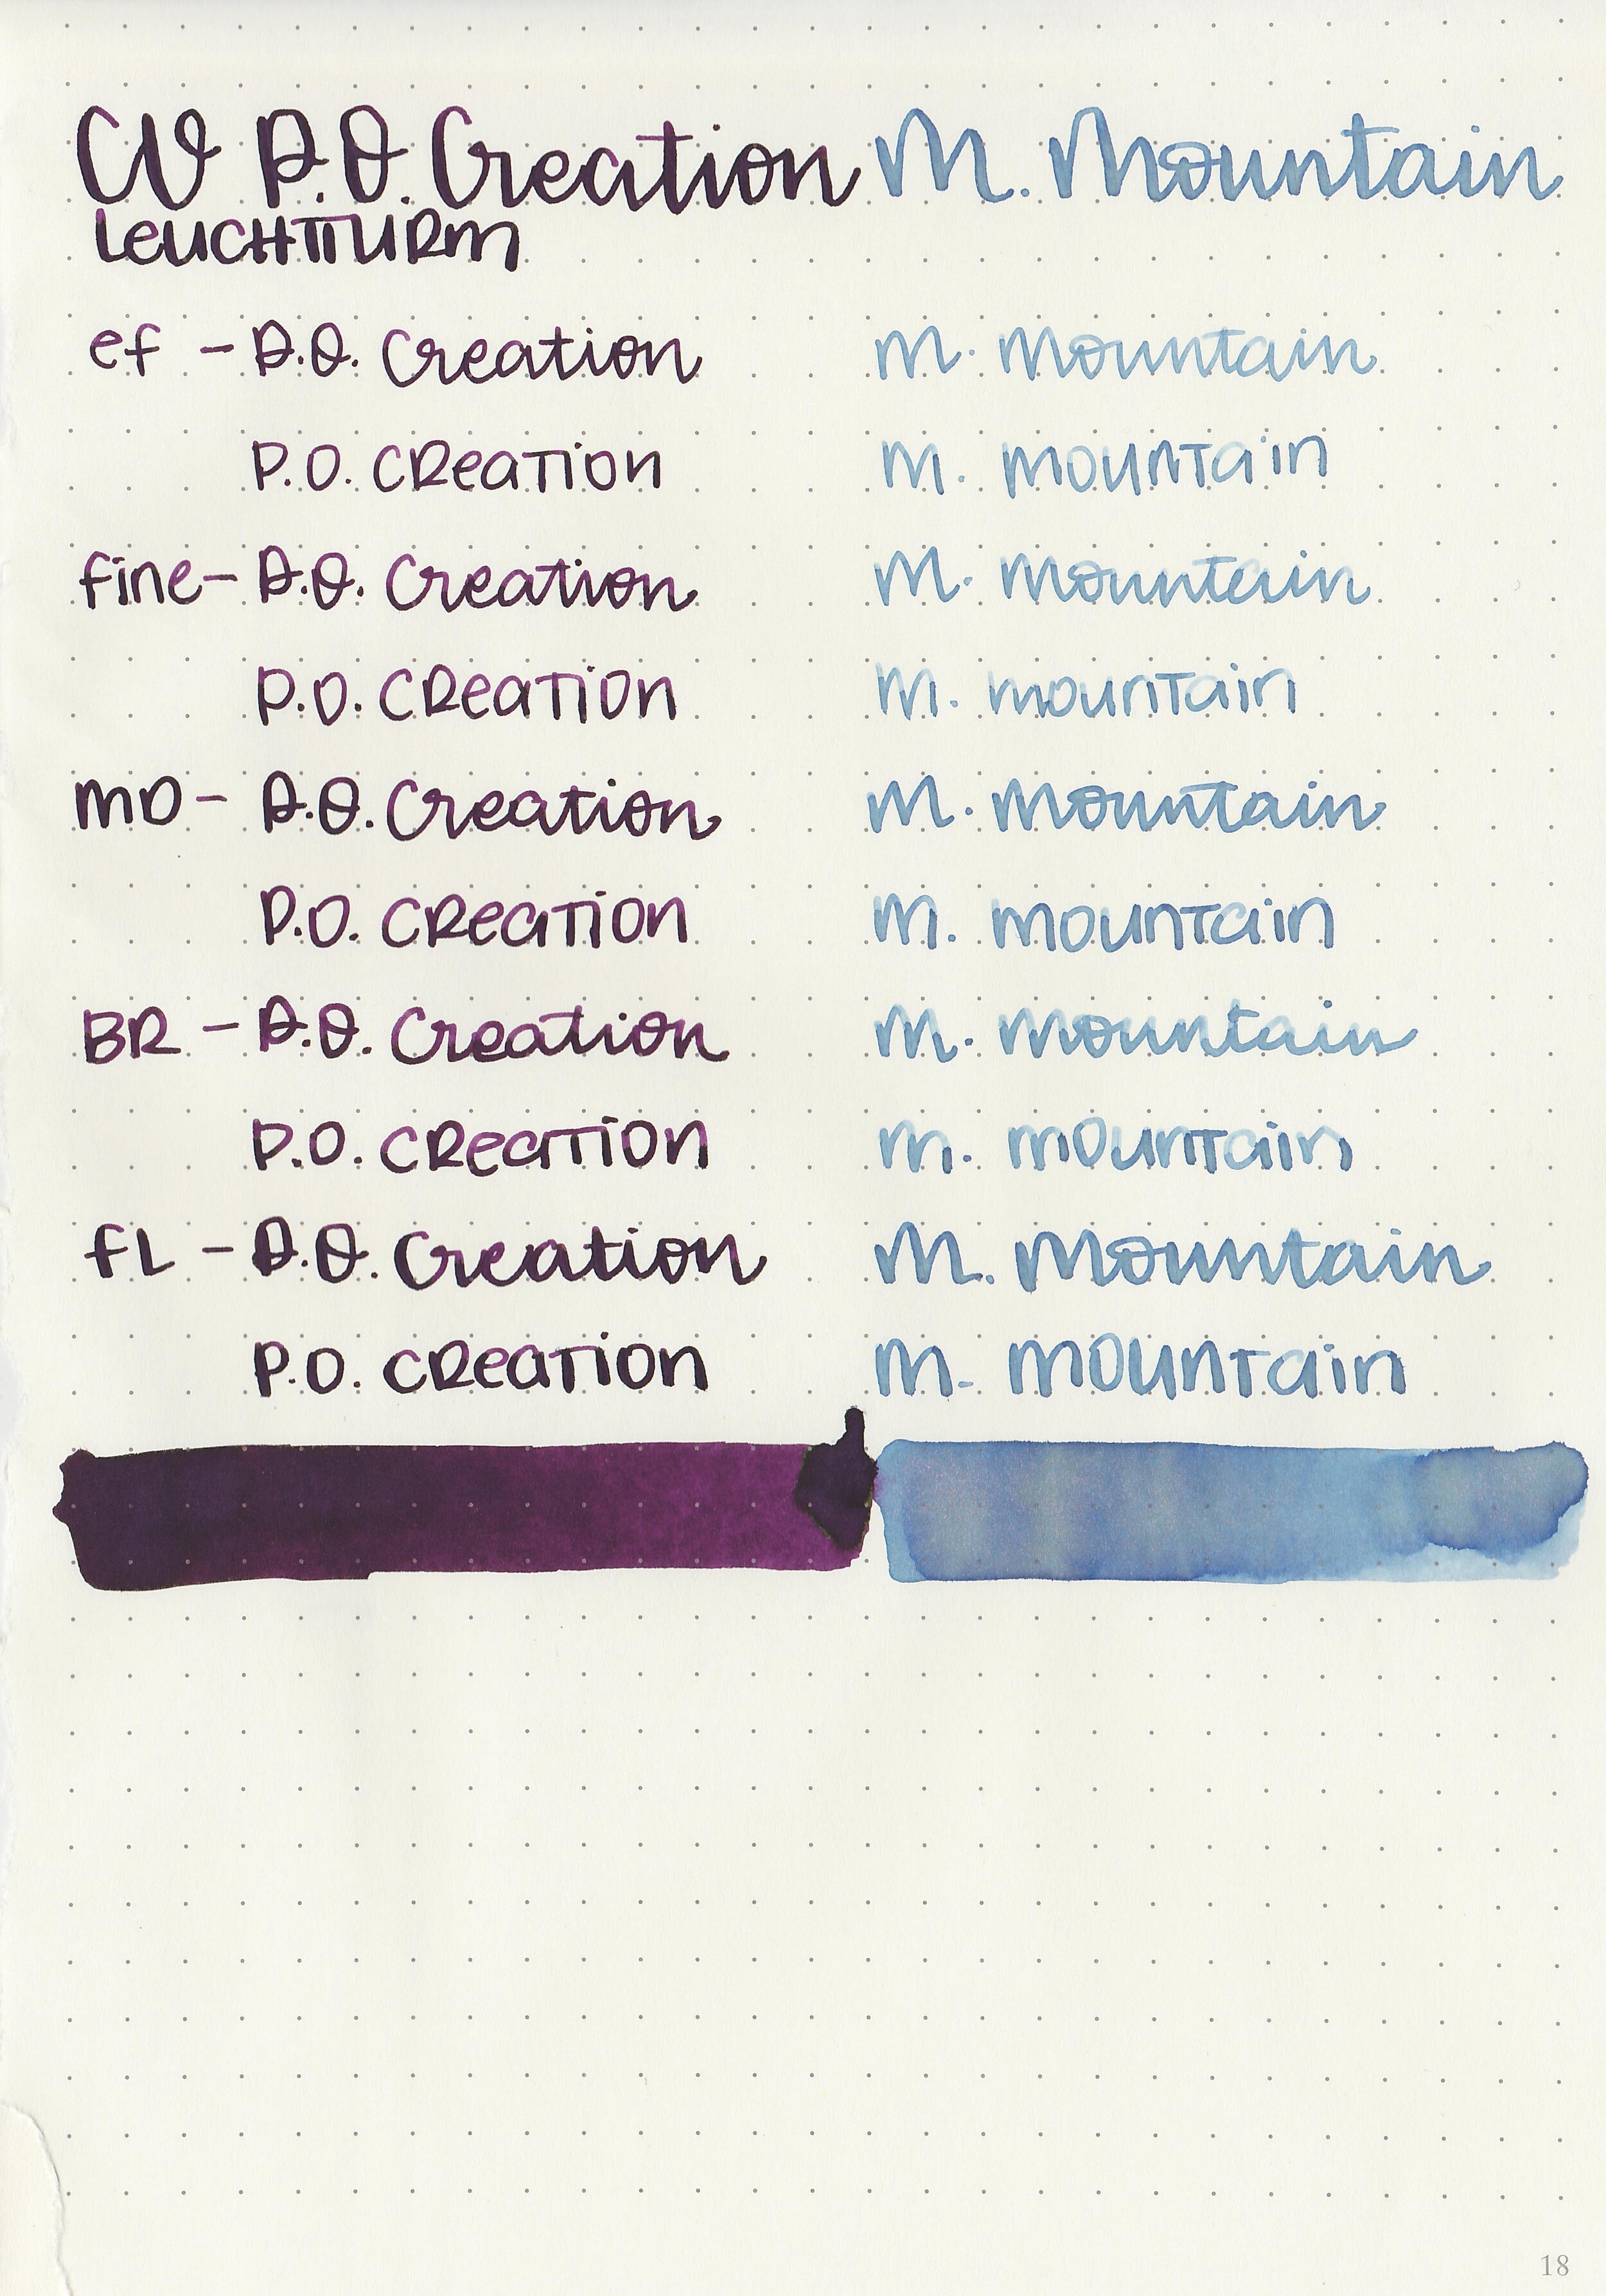 CV P.O. Creation M. Mountain
LEUCHTTURM
ef - P.O. Creation M. Mountain
P.O. CREATION M. MOUNTAIN
fine - P.O. Creation M. Mountain
P.O. CREATION M. MOUNTAIN
MD - P.O. Creation M. Mountain
P.O. CREATION M. MOUNTAIN
BR - P.O. Creation M. Mountain
P.O. CREATION M. MOUNTAIN
FL - P.O. Creation M. Mountain
P.O. CREATION M. MOUNTAIN
18